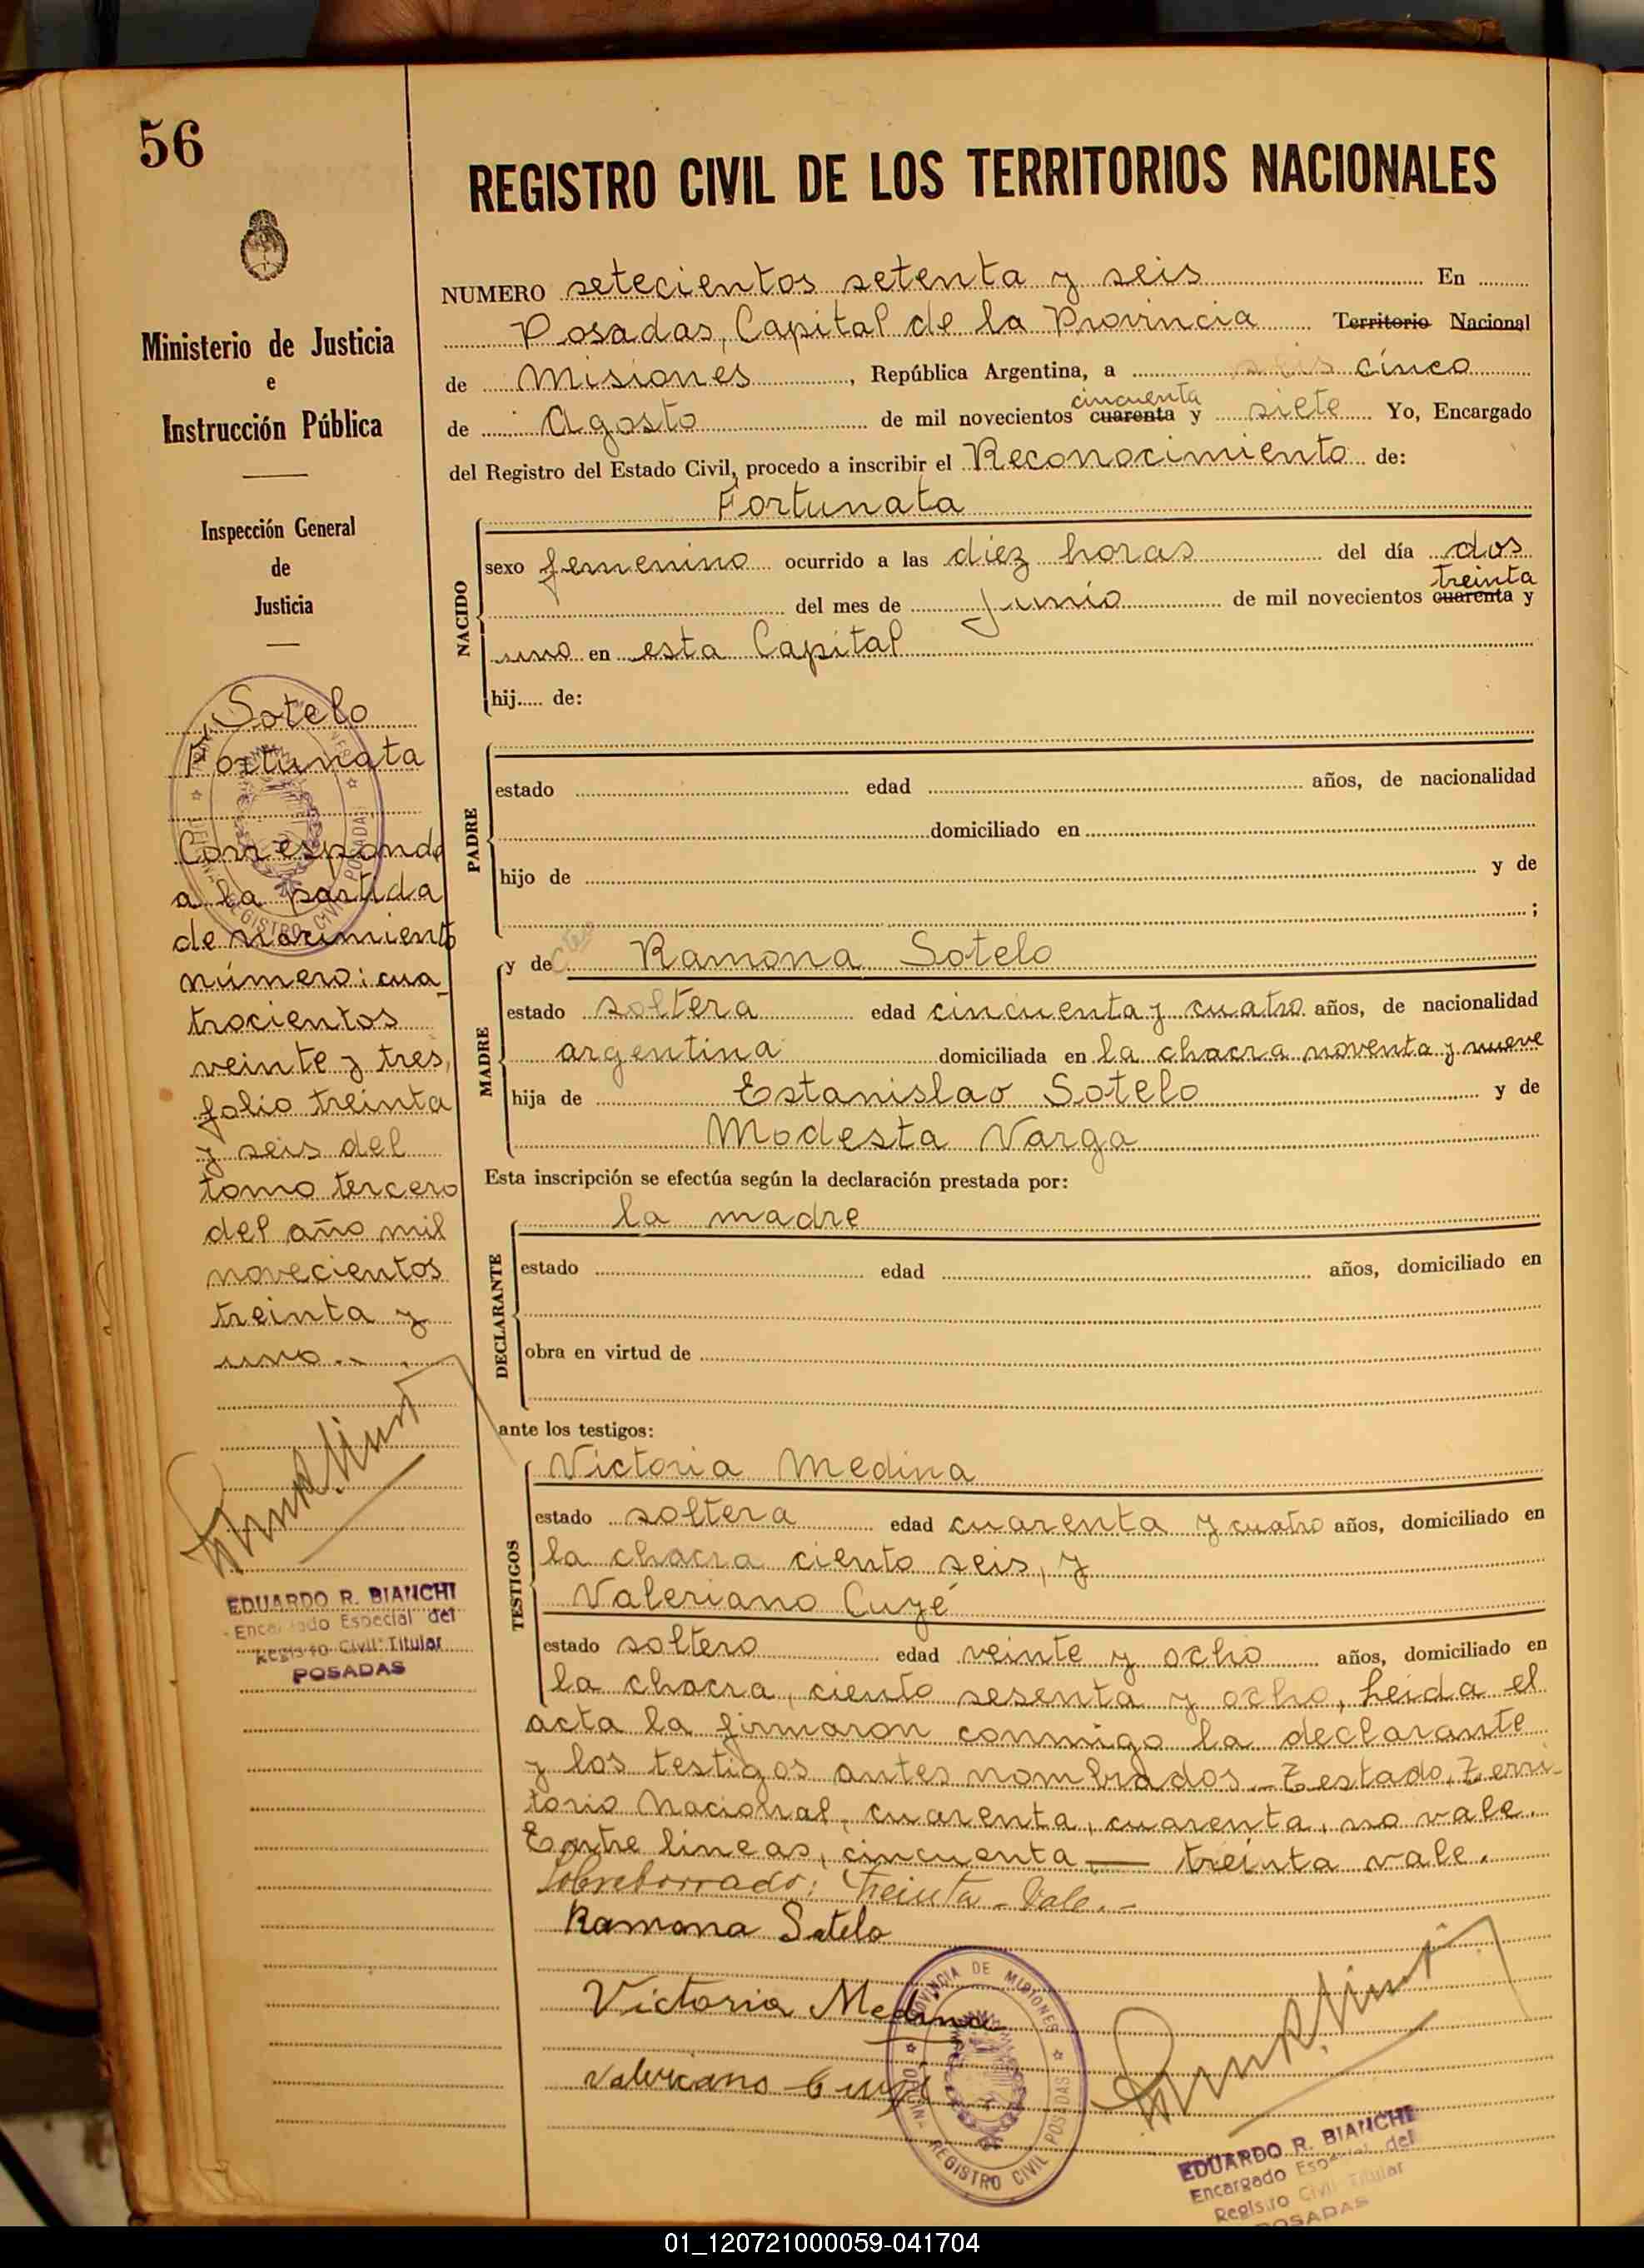 56
Ministerio de Justicia
e
Instrucción Pública
Inspección General
de
Justicia
Sotelo
Fortunata
Corresponde
a la partida
de nacimiento
número: cua-
trocientos
veinte y tres,
folio treinta
y seis del
tomo tercero
del año mil
novecientos
treinta y
uno..
EDUARDO R. BIANCHI
Encargado Especial del
Registro Civil Titular
POSADAS
REGISTRO CIVIL DE LOS TERRITORIOS NACIONALES
NUMERO setecientos setenta y seis En
Posadas, Capital de la Provincia Territorio Nacional
de Misiones, República Argentina, a cinco
cincuenta
de Agosto de mil novecientos cuarenta y siete Yo, Encargado
del Registro del Estado Civil, procedo a inscribir el Reconocimiento de:
Fortunata
NACIDO
sexo femenino ocurrido a las diez horas del día dos
treinta
del mes de junio de mil novecientos cuarenta y
uno en esta Capital
hij..... de:
PADRE
estado edad años, de nacionalidad
domiciliado en
hijo de y de
;
MADRE
y de Ramona Sotelo
estado soltera edad cincuenta y cuatro años, de nacionalidad
argentina domiciliada en la chacra noventa y nueve
hija de Estanislao Sotelo y de
Modesta Varga
Esta inscripción se efectúa según la declaración prestada por:
la madre
DECLARANTE
estado edad años, domiciliado en
obra en virtud de
ante los testigos:
TESTIGOS
Victoria Medina
estado soltera edad cuarenta y cuatro años, domiciliado en
la chacra ciento seis, y
Valeriano Cuyé
estado soltero edad veinte y ocho años, domiciliado en
la chacra, ciento sesenta y ocho, leida el
acta la firmaron conmigo la declarante
y los testigos antes nombrados. Testado, Terri-
torio Nacional, cuarenta, cuarenta, no vale.
Entre lineas, cincuenta — treinta vale.
Sobreborrado: treinta - Vale. -
Ramona Sotelo
Victoria Medina
Valericano Cuyé
PROVINCIA DE MISIONES
REGISTRO CIVIL POSADAS
EDUARDO R. BIANCHI
Encargado Especial del
Registro Civil Titular
POSADAS
01_120721000059-041704